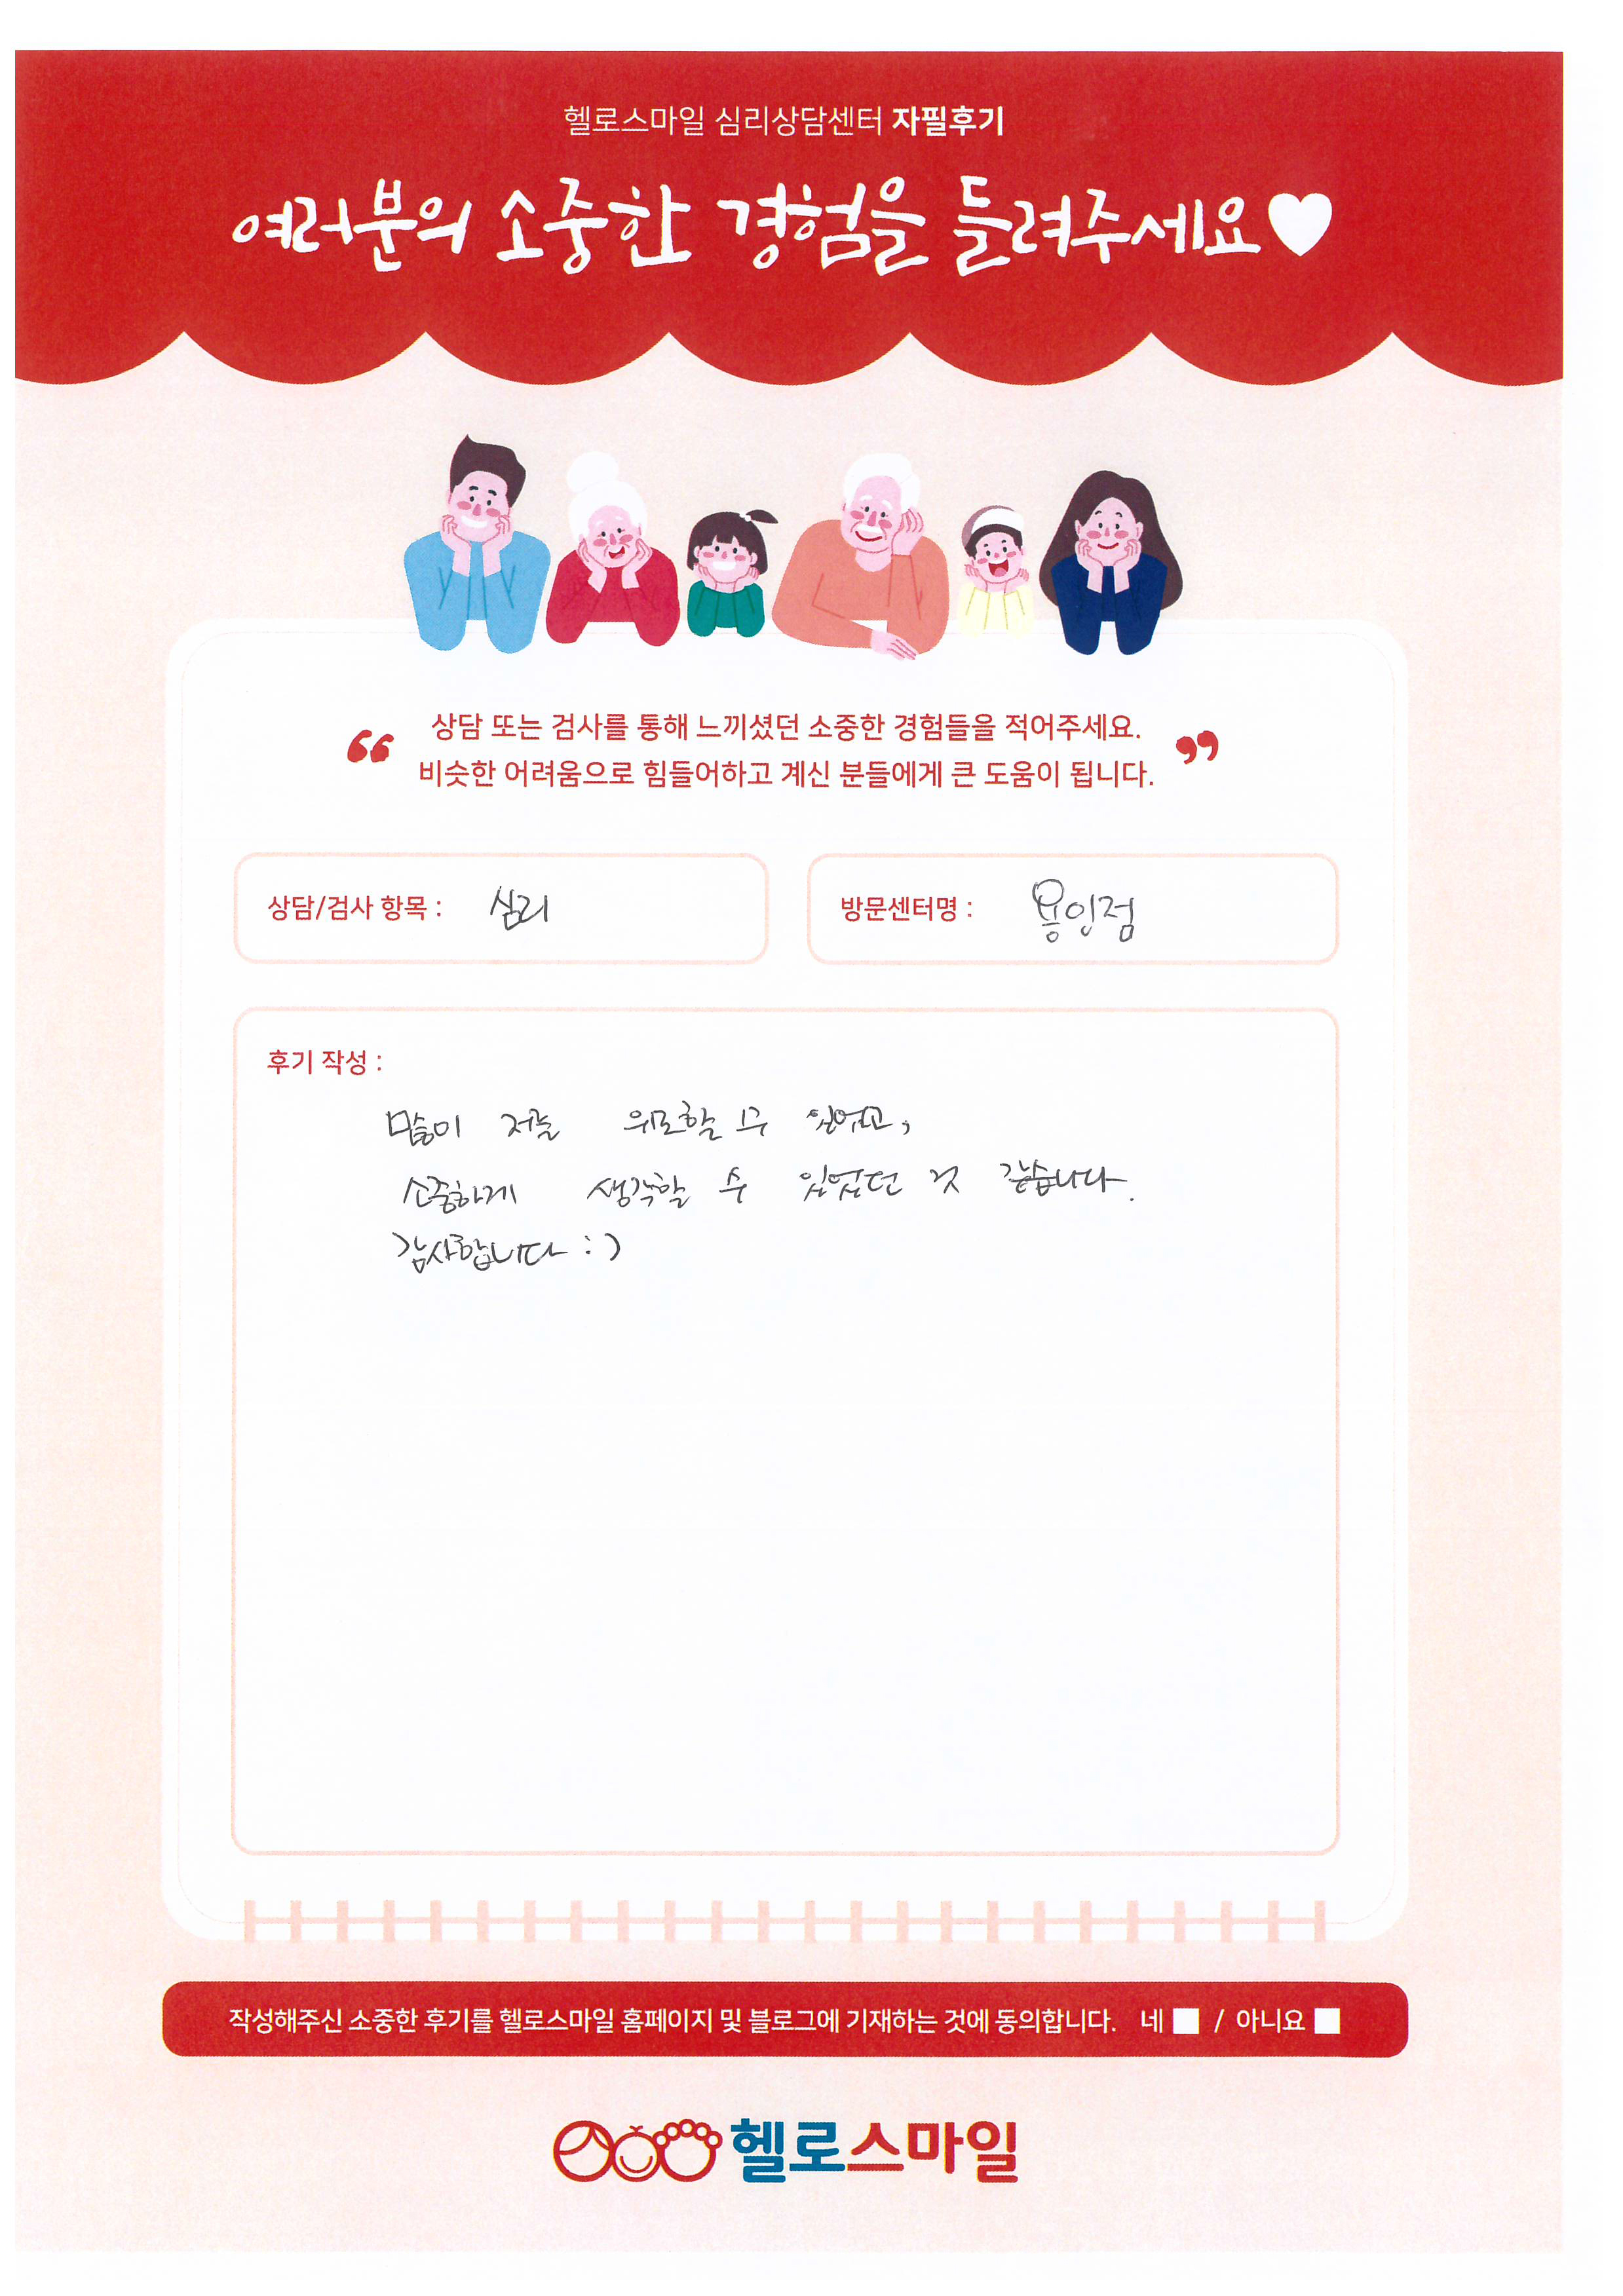 헬로스마일 심리상담센터 자필후기
여러분의 소중한 경험을 들려주세요
상담 또는 검사를 통해 느끼셨던 소중한 경험들을 적어주세요.
비슷한 어려움으로 힘들어하고 계신 분들에게 큰 도움이 됩니다.
상담/검사 항목 : 심리
방문센터명 : 용인점
후기 작성 :
저를 위로할 수 있었고,
소중하게 생각할 수 있었던 것 같습니다.
감사합니다 :)
작성해주신 소중한 후기를 헬로스마일 홈페이지 및 블로그에 기재하는 것에 동의합니다. 네 / 아니요
헬로스마일